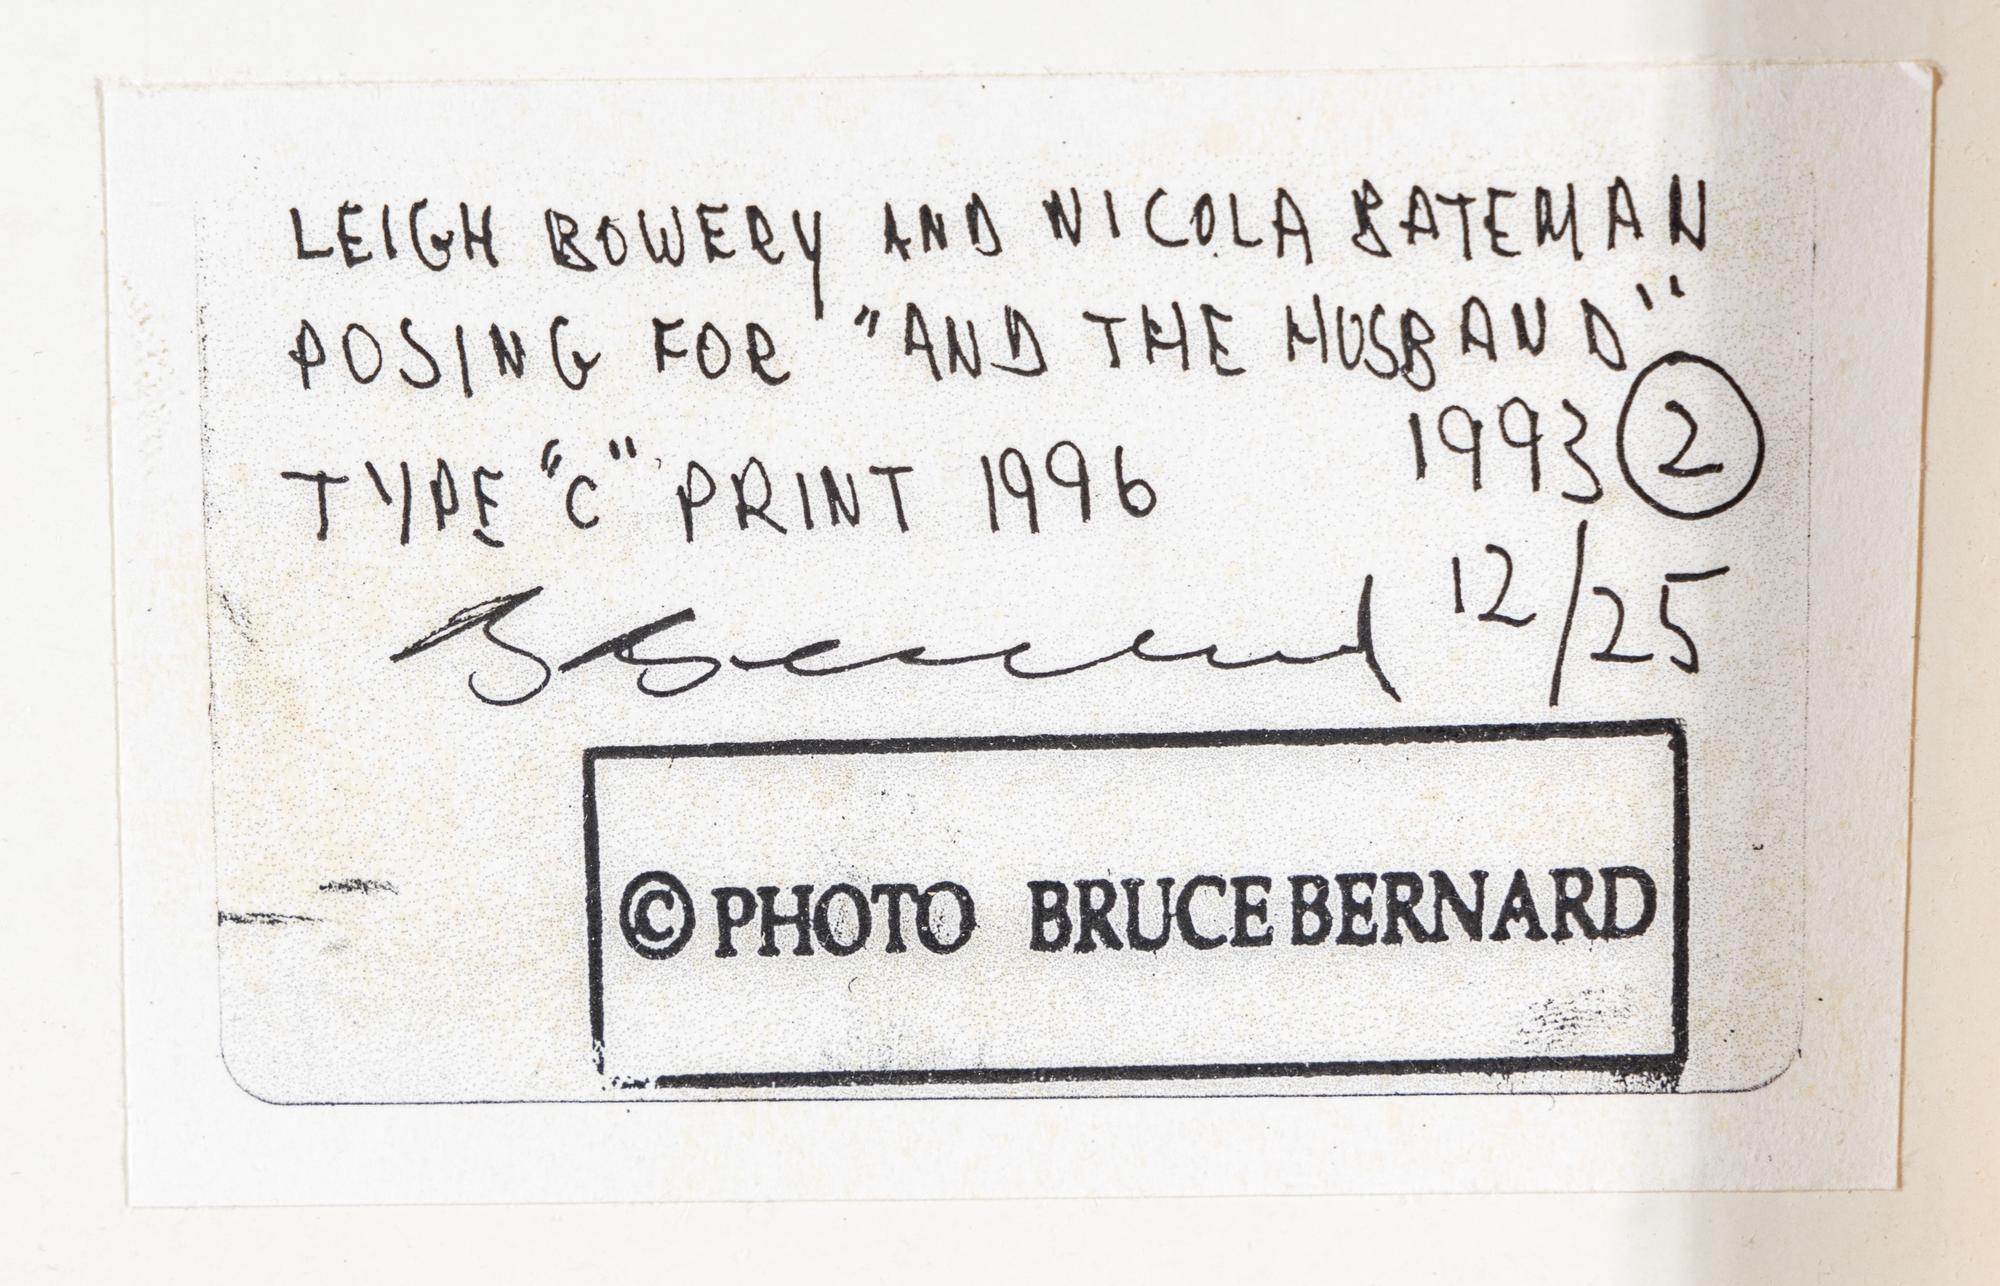 LEIGH BOWERY AND NICOLA BATEMAN
POSING FOR "AND THE HUSBAND"
1993 2
TYPE "C" PRINT 1996
B Bernard 12/25
© PHOTO BRUCE BERNARD